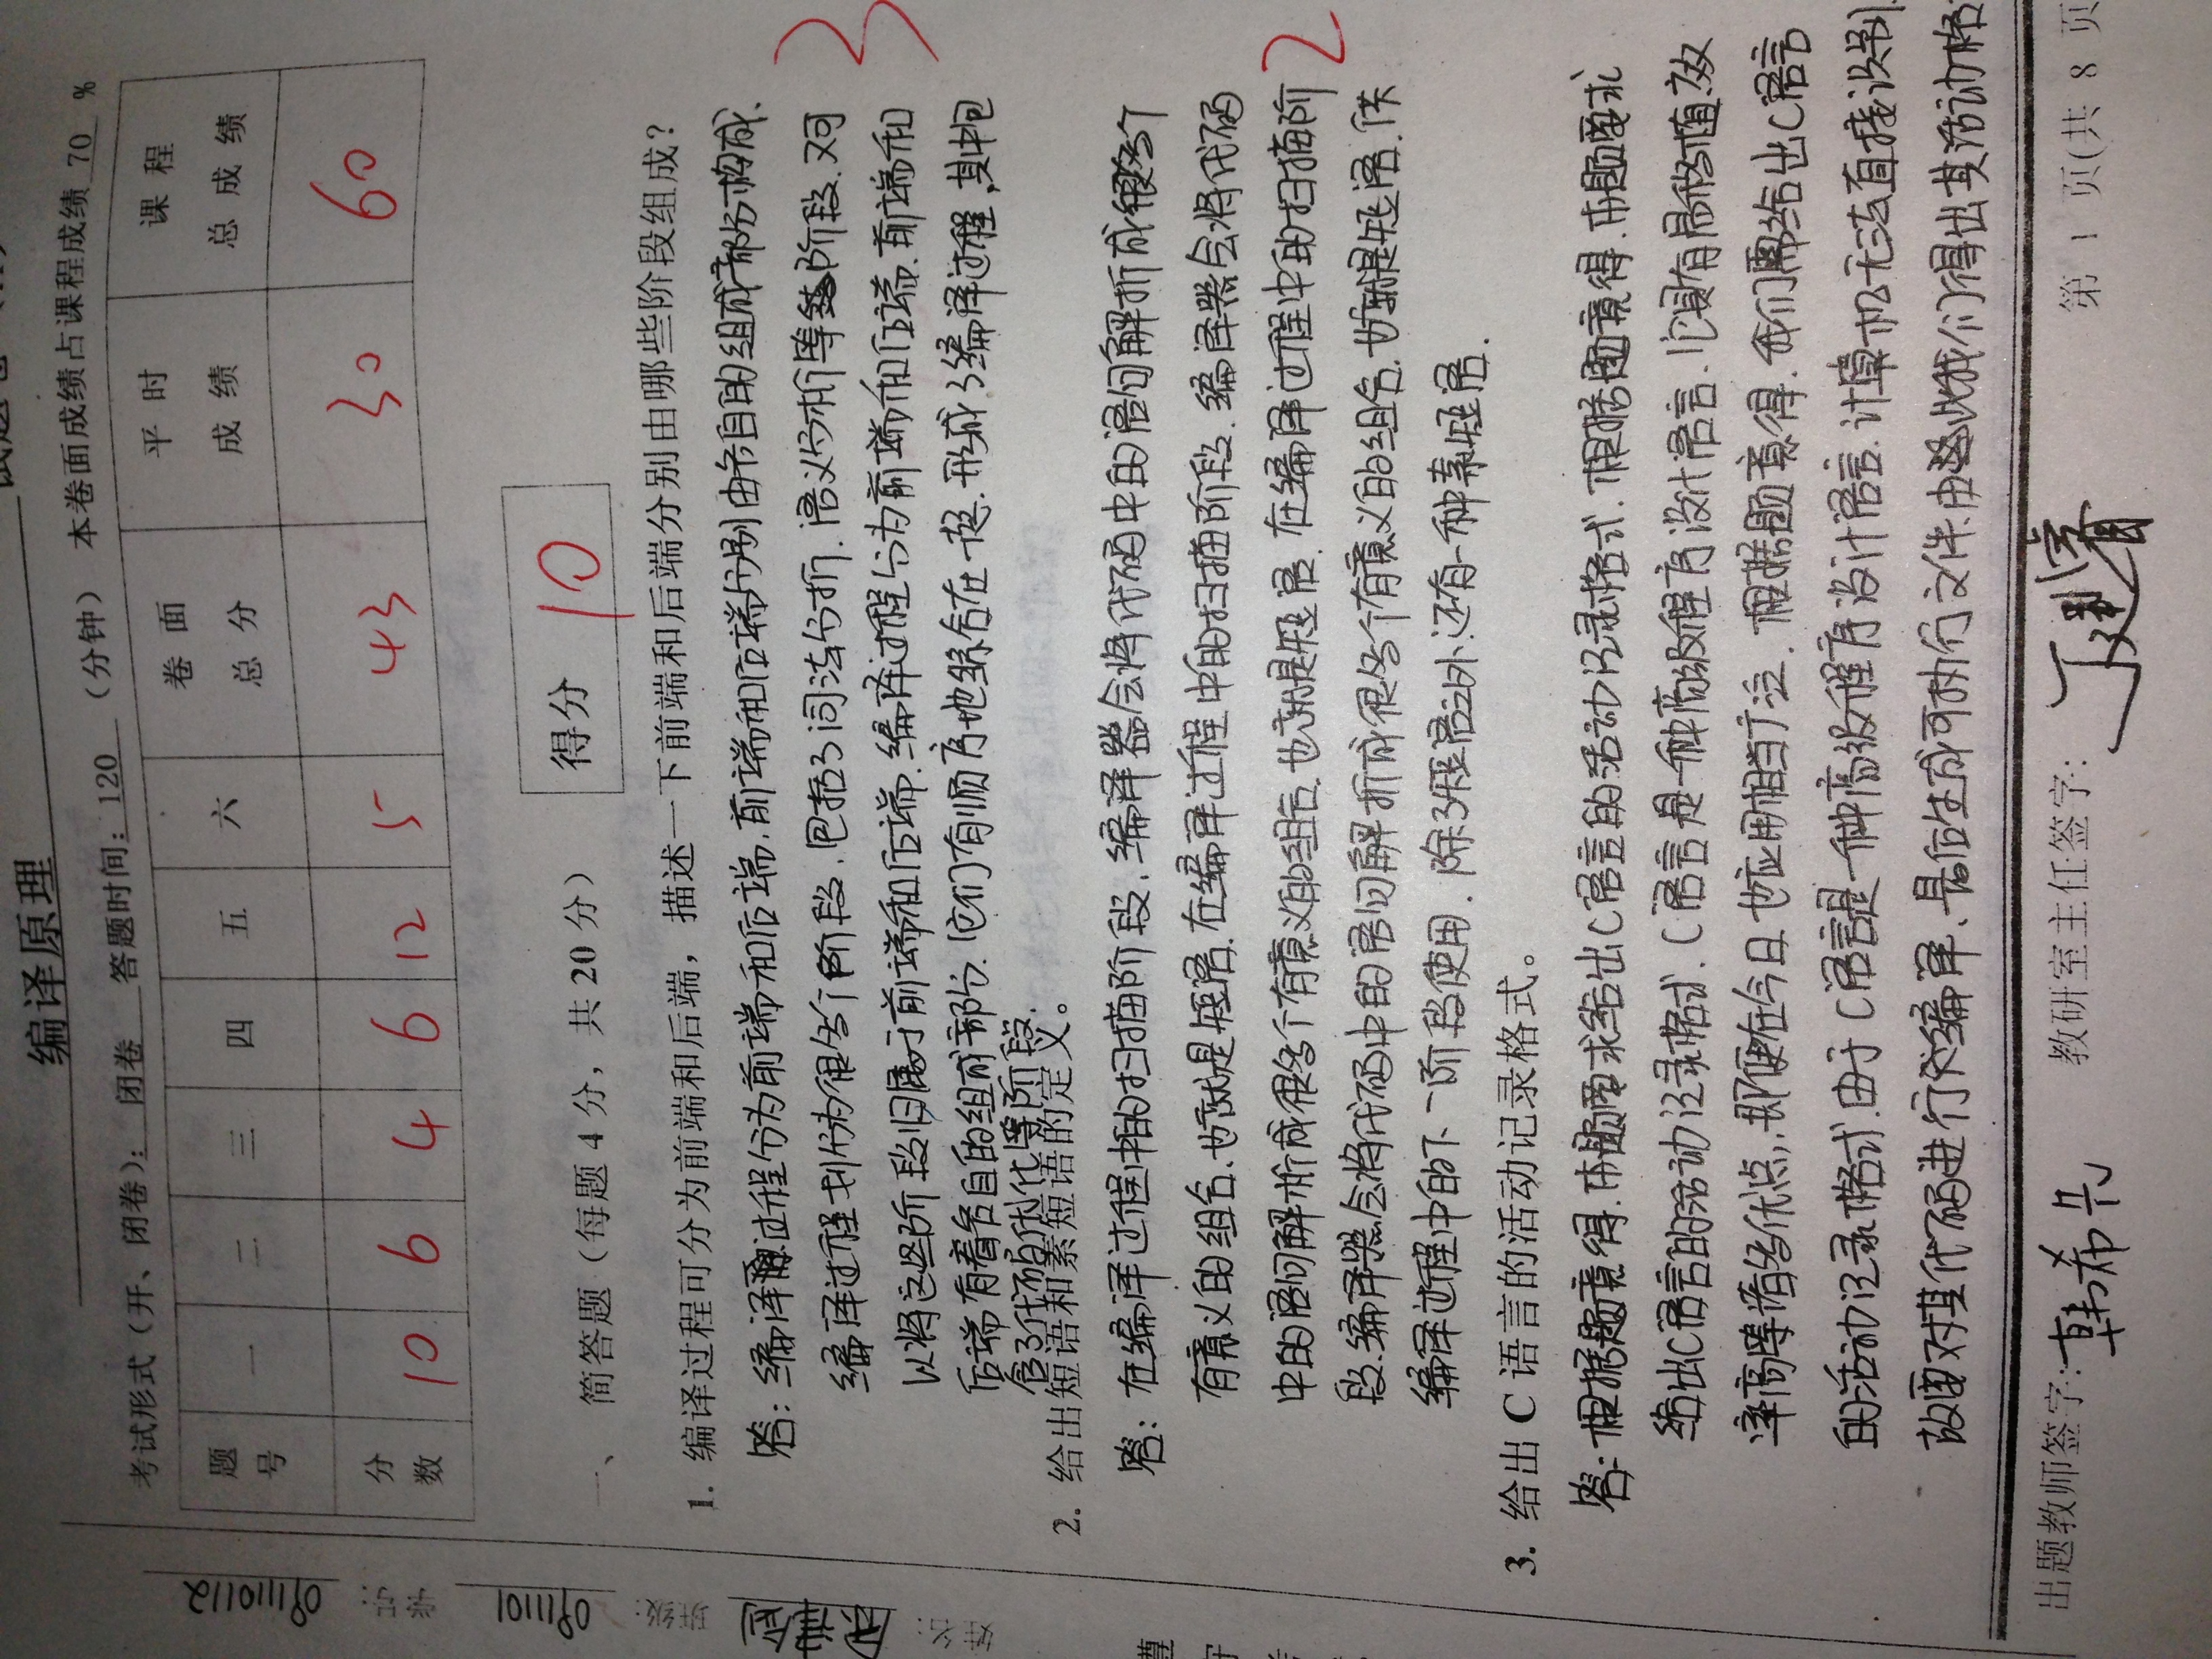 编译原理
考试形式（开、闭卷）： 闭卷 答题时间：120 （分钟） 本卷面成绩占课程成绩 70 %
题号 一 二 三 四 五 六 卷面总分 平时成绩 课程总成绩
分数 10 6 4 6 12 5 43 30 60
学号： 0911101112
班级： 0911101
姓名：
一、 简答题（每题 4 分，共 20 分） 得分 10
1. 编译过程可分为前端和后端，描述一下前端和后端分别由哪些阶段组成？
答：编译过程分为前端和后端.前端和后端分别由各自的组成部分构成.
编译过程划分为很多个阶段.包括了词法分折.语义分析等阶段.又可
以将这些阶段归属于前端和后端.编译过程分为前端和后端.前端和
后端有着各自的组成部分.它们有顺序地综合在一起.形成了编译过程,其中包
含了代码优化等阶段.
3
2. 给出短语和素短语的定义。
答：在编译过程中的扫描阶段.编译器会将代码中的语句解折成很多个
有意义的组合.也就是短语.在编译过程中的扫描阶段.编译器会将代码
中的语句解析成很多个有意义的组合.也就是短语.在编译过程中的扫描阶
段.编译器会将代码中的语句解折成很多个有意义的组合.也就是短语.供
编译过程中的下一阶段使用.除了短语之外.还有一种素短语.
2
3. 给出 C 语言的活动记录格式。
答：根据题意得.本题要求给出C语言的活动记录格式.根据题意得.本题要求
给出C语言的活动记录格式.C语言是一种高级程序设计语言.它具有易移植.效
率高等诸多优点,即便在今日也应用相当广泛.根据题意得.我们需给出C语言
的活动记录格式.由于C语言是一种高级程序设计语言.计算机无法直接识别.
故要对其代码进行编译.最后生成可执行文件.由此我们得出其活动格
出题教师签字： 韩希先 教研室主任签字： 丁建睿 第 1 页(共 8 页